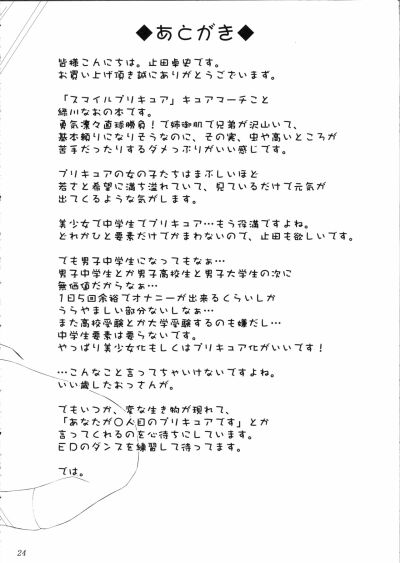 ◆あとがき◆
皆様こんにちは。止田卓史です。
お買い上げ頂き誠にありがとうございます。
「スマイルプリキュア」キュアマーチこと
緑川なおの本です。
勇気凛々直球勝負！で姉御肌で兄弟が沢山いて、
基本頼りになりそうなのに、その実、虫や高いところが
苦手だったりするダメっぷりがいい感じです。
プリキュアの女の子たちはまぶしいほど
若さと希望に満ち溢れていて、見ているだけで元気が
出てくるような気がします。
美少女で中学生でプリキュア…もう役満ですよね。
どれかひと要素だけでかまわないので、止田も欲しいです。
でも男子中学生になってもなぁ…
男子中学生とか男子高校生と男子大学生の次に
無価値だからなぁ…
１日５回余裕でオナニーが出来るくらいしか
うらやましい部分ないしなぁ…
また高校受験とか大学受験するのも嫌だし…
中学生要素は要らないです。
やっぱり美少女化もしくはプリキュア化がいいです！
…こんなこと言ってちゃいけないですよね。
いい歳したおっさんが。
でもいつか、変な生き物が現れて、
「あなたが〇人目のプリキュアです」とか
言ってくれるのを心待ちにしています。
ＥＤのダンスを練習して待ってます。
では。
24